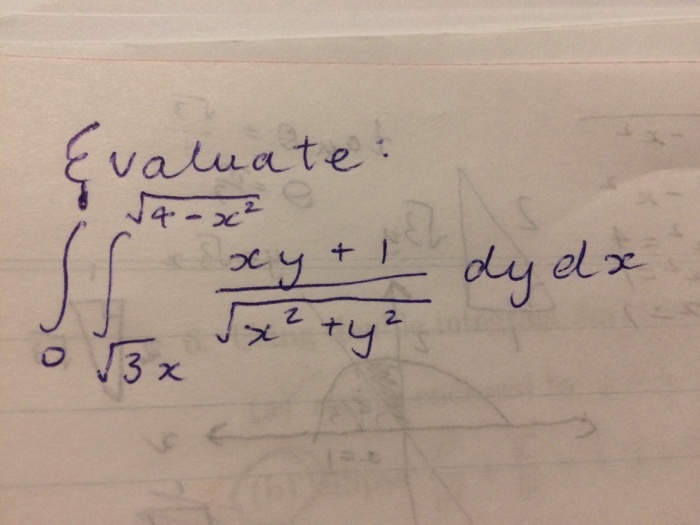 Evaluate:
∫₀ ∫_{√3x}^{√4-x²} (xy + 1)/√(x² + y²) dy dx